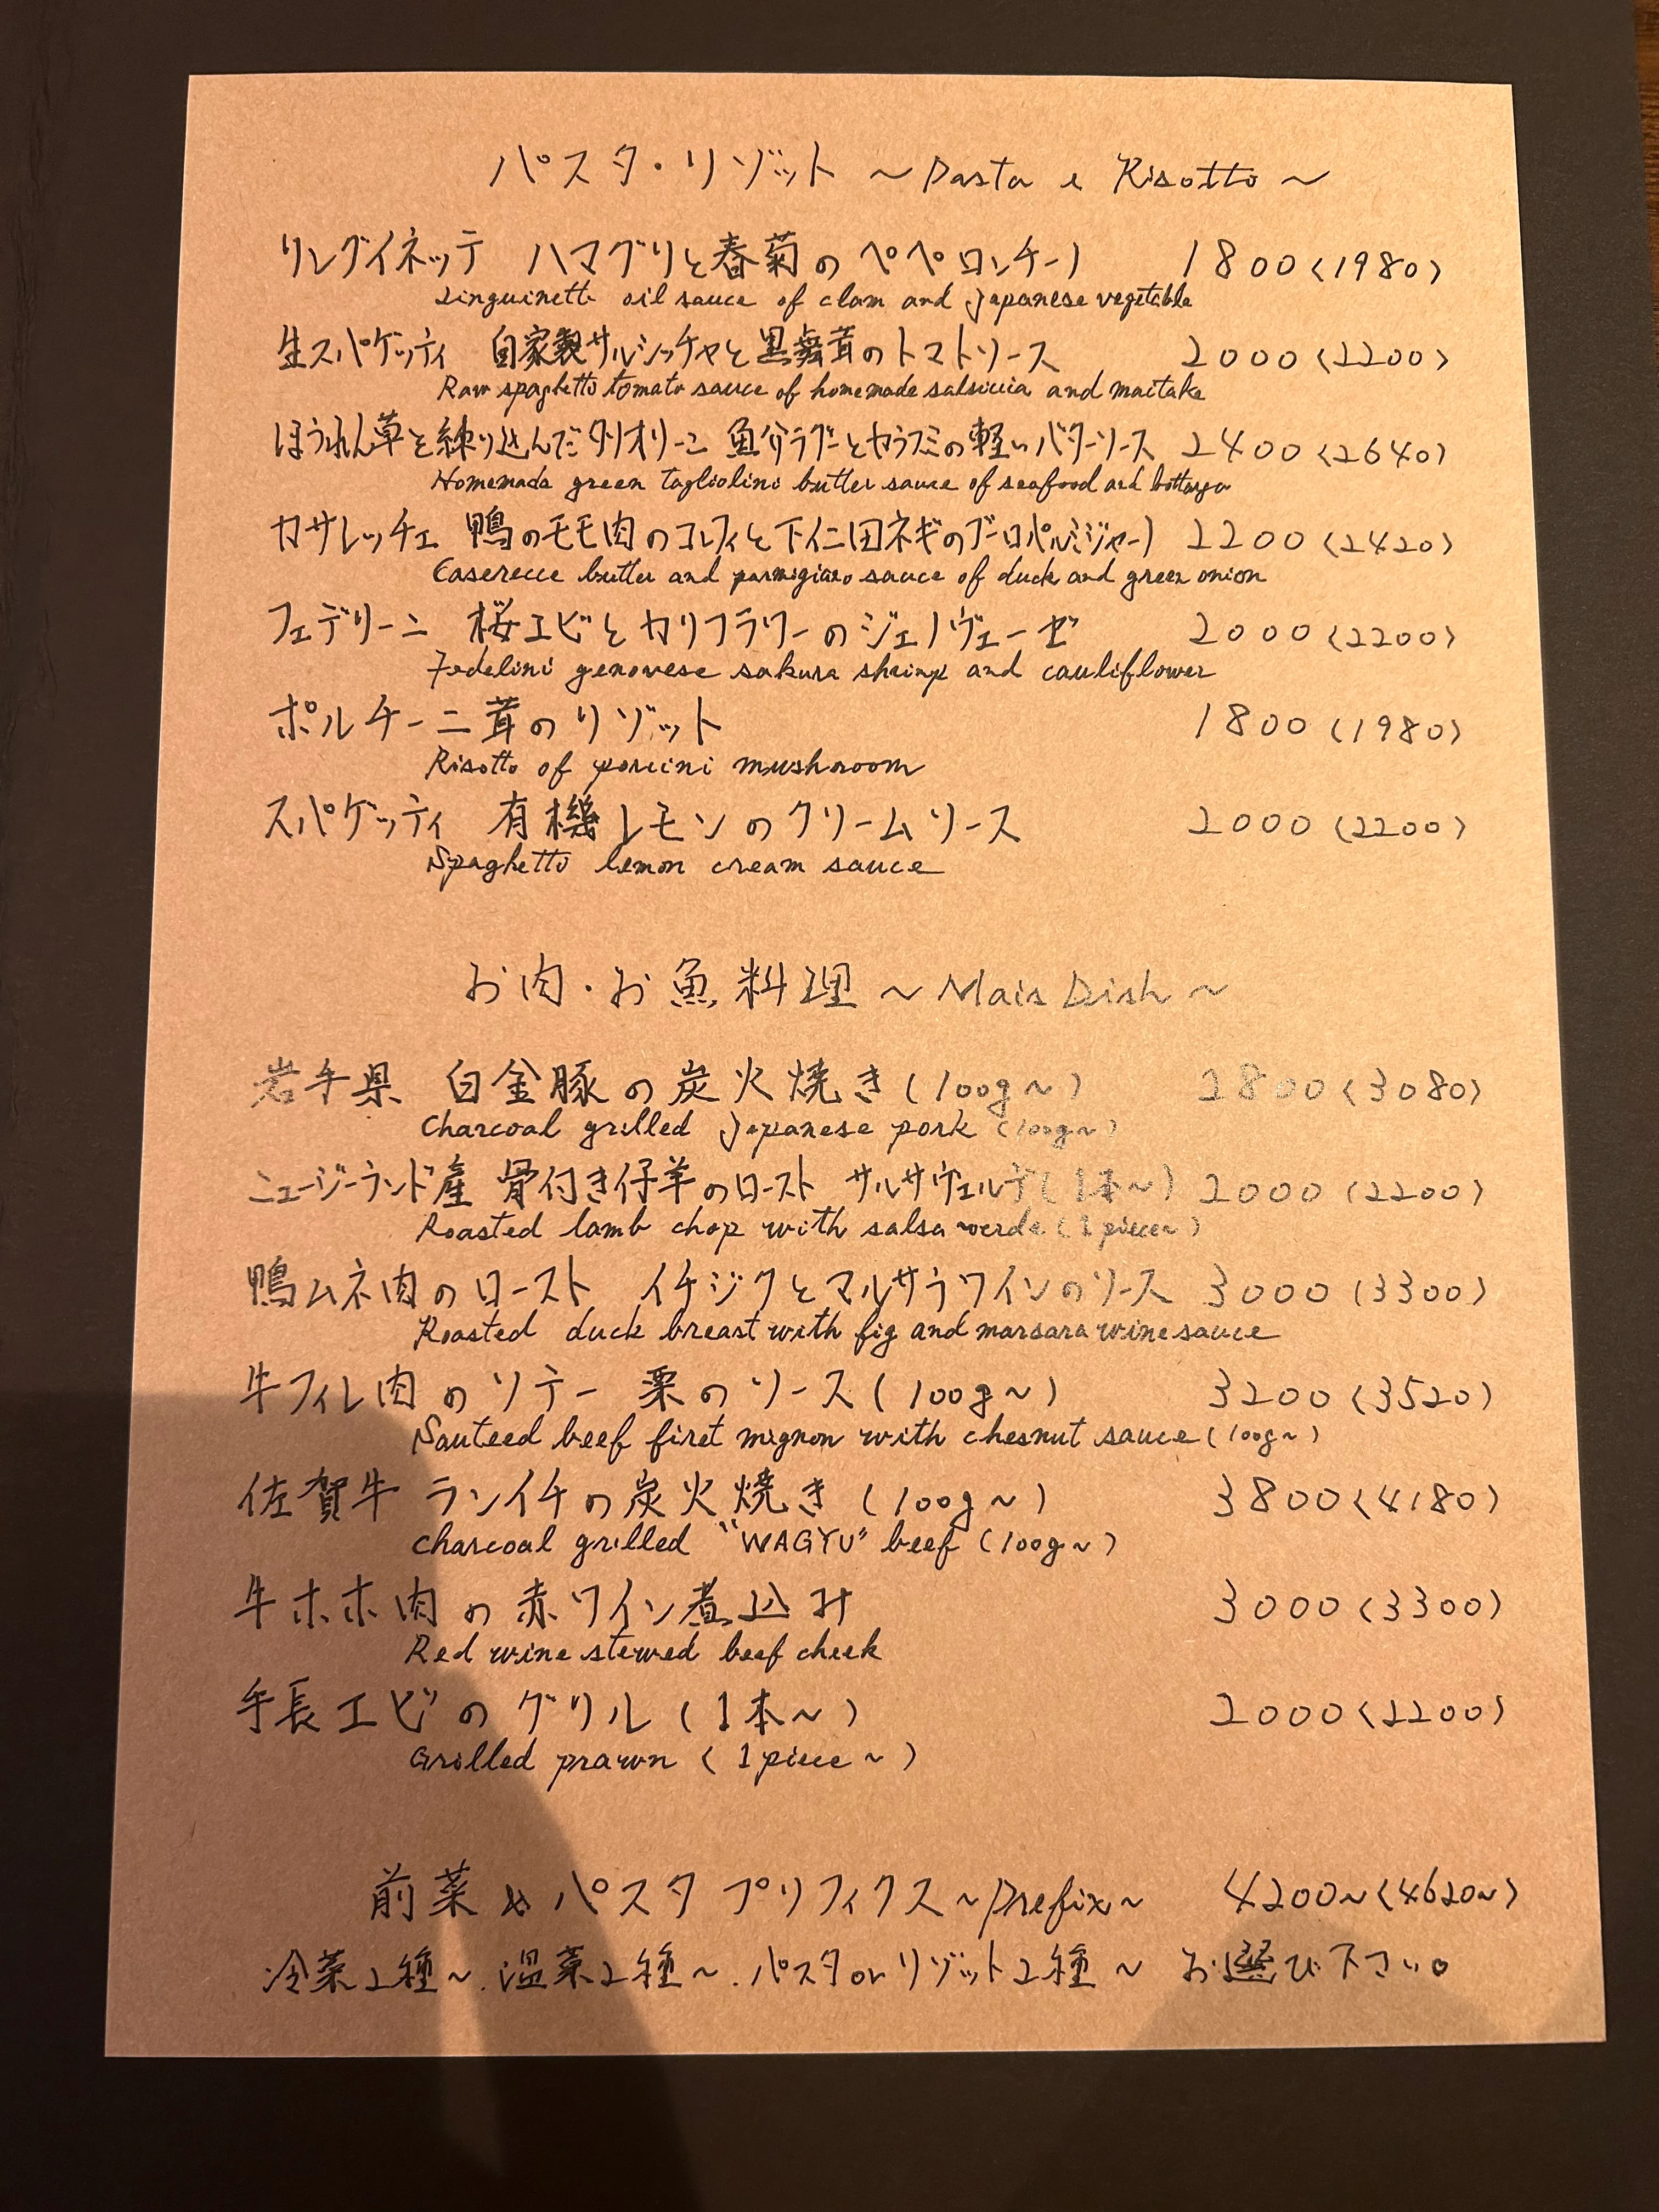 パスタ・リゾット ～Pasta e Risotto～
リングイネッテ ハマグリと春菊のペペロンチーノ 1800(1980)
Linguinette oil sauce of clam and Japanese vegetable
生スパゲッティ 自家製サルシッチャと黒舞茸のトマトソース 2000(2200)
Raw spaghetto tomato sauce of homemade salsiccia and maitake
ほうれん草を練り込んだタリオリーニ 魚介ラグーとカラスミの軽いバターソース 2400(2640)
Homemade green tagliolini butter sauce of seafood and bottarga
カサレッチェ 鴨のモモ肉のコンフィと下仁田ネギのブーロパルミジャーノ 2200(2420)
Caserecce butter and parmigiano sauce of duck and green onion
フェデリーニ 桜エビとカリフラワーのジェノヴェーゼ 2000(2200)
Fedelini genovese sakura shrimp and cauliflower
ポルチーニ茸のリゾット 1800(1980)
Risotto of porcini mushroom
スパゲッティ 有機レモンのクリームソース 2000(2200)
Spaghetto lemon cream sauce
お肉・お魚料理 ～Mais Dish～
岩手県 白金豚の炭火焼き(100g～) 2800(3080)
Charcoal grilled Japanese pork (100g～)
ニュージーランド産 骨付き仔羊のロースト サルサヴェルデ(1本～) 2000(2200)
Roasted lamb chop with salsa verde (1piece～)
鴨ムネ肉のロースト イチジクとマルサラワインのソース 3000(3300)
Roasted duck breast with fig and marsara wine sauce
牛フィレ肉のソテー 栗のソース(100g～) 3200(3520)
Sauteed beef firet mignon with chesnut sauce (100g～)
佐賀牛 ランイチの炭火焼き(100g～) 3800(4180)
charcoal grilled "WAGYU" beef (100g～)
牛ホホ肉の赤ワイン煮込み 3000(3300)
Red wine stewed beef cheek
手長エビのグリル(1本～) 2000(2200)
Grilled prawn (1piece～)
前菜&パスタ プリフィクス～Prefix～ 4200～(4620～)
冷菜2種～.温菜2種～.パスタorリゾット2種～ お選び下さい。